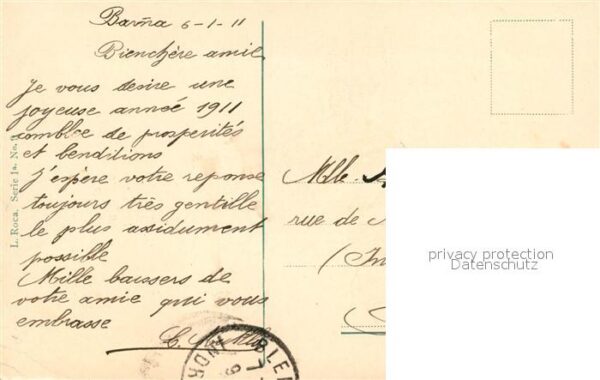 Barña 6-1-11
Bienchère amie
Je vous desire une
joyeuse année 1911
comblée de prosperités
et benditions
J'espère votre reponse
toujours très gentille
le plus assidument
possible
Mille baissers de
votre amie qui vous
embrasse
L. Roca. Serie 1a. No.
Mlle
rue de
(In
privacy protection
Datenschutz